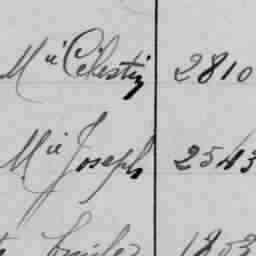 Mii Célestin 2810
Mii Joseph 2543
Emile 1853